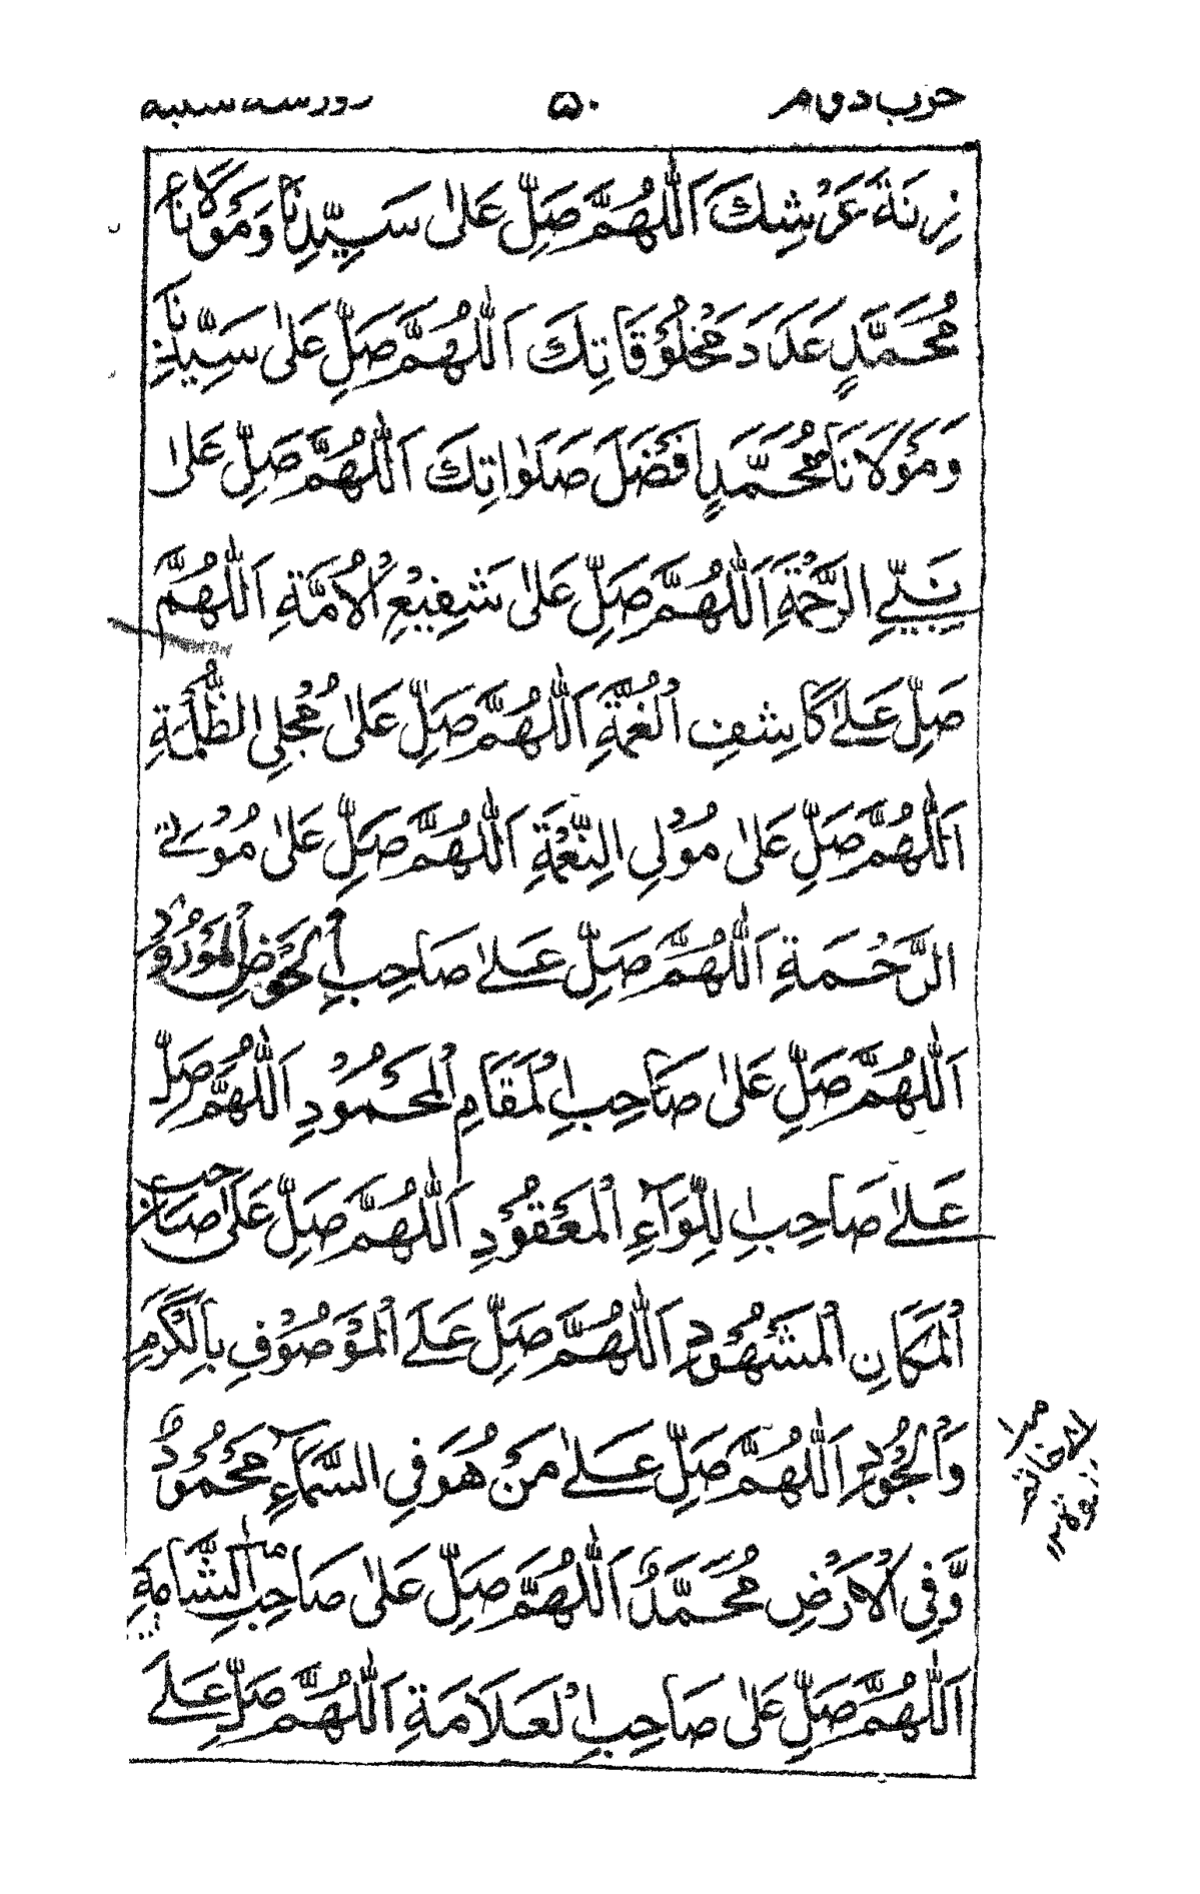 حزب دوم ۵۰ روز سه شنبه
زِنَةَ عَرْشِكَ اَللّٰهُمَّ صَلِّ عَلٰى سَيِّدِنَا وَمَوْلَانَا
مُحَمَّدٍ عَدَدَ مَخْلُوْقَاتِكَ اَللّٰهُمَّ صَلِّ عَلٰى سَيِّدِنَا
وَمَوْلَانَا مُحَمَّدٍ اَفْضَلَ صَلَوٰاتِكَ اَللّٰهُمَّ صَلِّ عَلٰى
نَبِيِّ الرَّحْمَةِ اَللّٰهُمَّ صَلِّ عَلٰى شَفِيْعِ الْاُمَّةِ اَللّٰهُمَّ
صَلِّ عَلٰى كَاشِفِ الْغُمَّةِ اَللّٰهُمَّ صَلِّ عَلٰى مُجْلِي الظُّلْمَةِ
اَللّٰهُمَّ صَلِّ عَلٰى مُوْلِي النِّعْمَةِ اَللّٰهُمَّ صَلِّ عَلٰى مُوْتِي
الرَّحْمَةِ اَللّٰهُمَّ صَلِّ عَلٰى صَاحِبِ الْحَوْضِ الْمَوْرُوْدِ
اَللّٰهُمَّ صَلِّ عَلٰى صَاحِبِ الْمَقَامِ الْمَحْمُوْدِ اَللّٰهُمَّ صَلِّ
عَلٰى صَاحِبِ اللِّوَآءِ الْمَعْقُوْدِ اَللّٰهُمَّ صَلِّ عَلٰى صَاحِبِ
الْمَكَانِ الْمَشْهُوْدِ اَللّٰهُمَّ صَلِّ عَلَى الْمَوْصُوْفِ بِالْكَرَمِ
وَالْجُوْدِ اَللّٰهُمَّ صَلِّ عَلٰى مَنْ هُوَ فِي السَّمَآءِ مَحْمُوْدٌ
وَّفِي الْاَرْضِ مُحَمَّدٌ اَللّٰهُمَّ صَلِّ عَلٰى صَاحِبِ الشَّامَةِ
اَللّٰهُمَّ صَلِّ عَلٰى صَاحِبِ الْعَلَامَةِ اَللّٰهُمَّ صَلِّ عَلَى